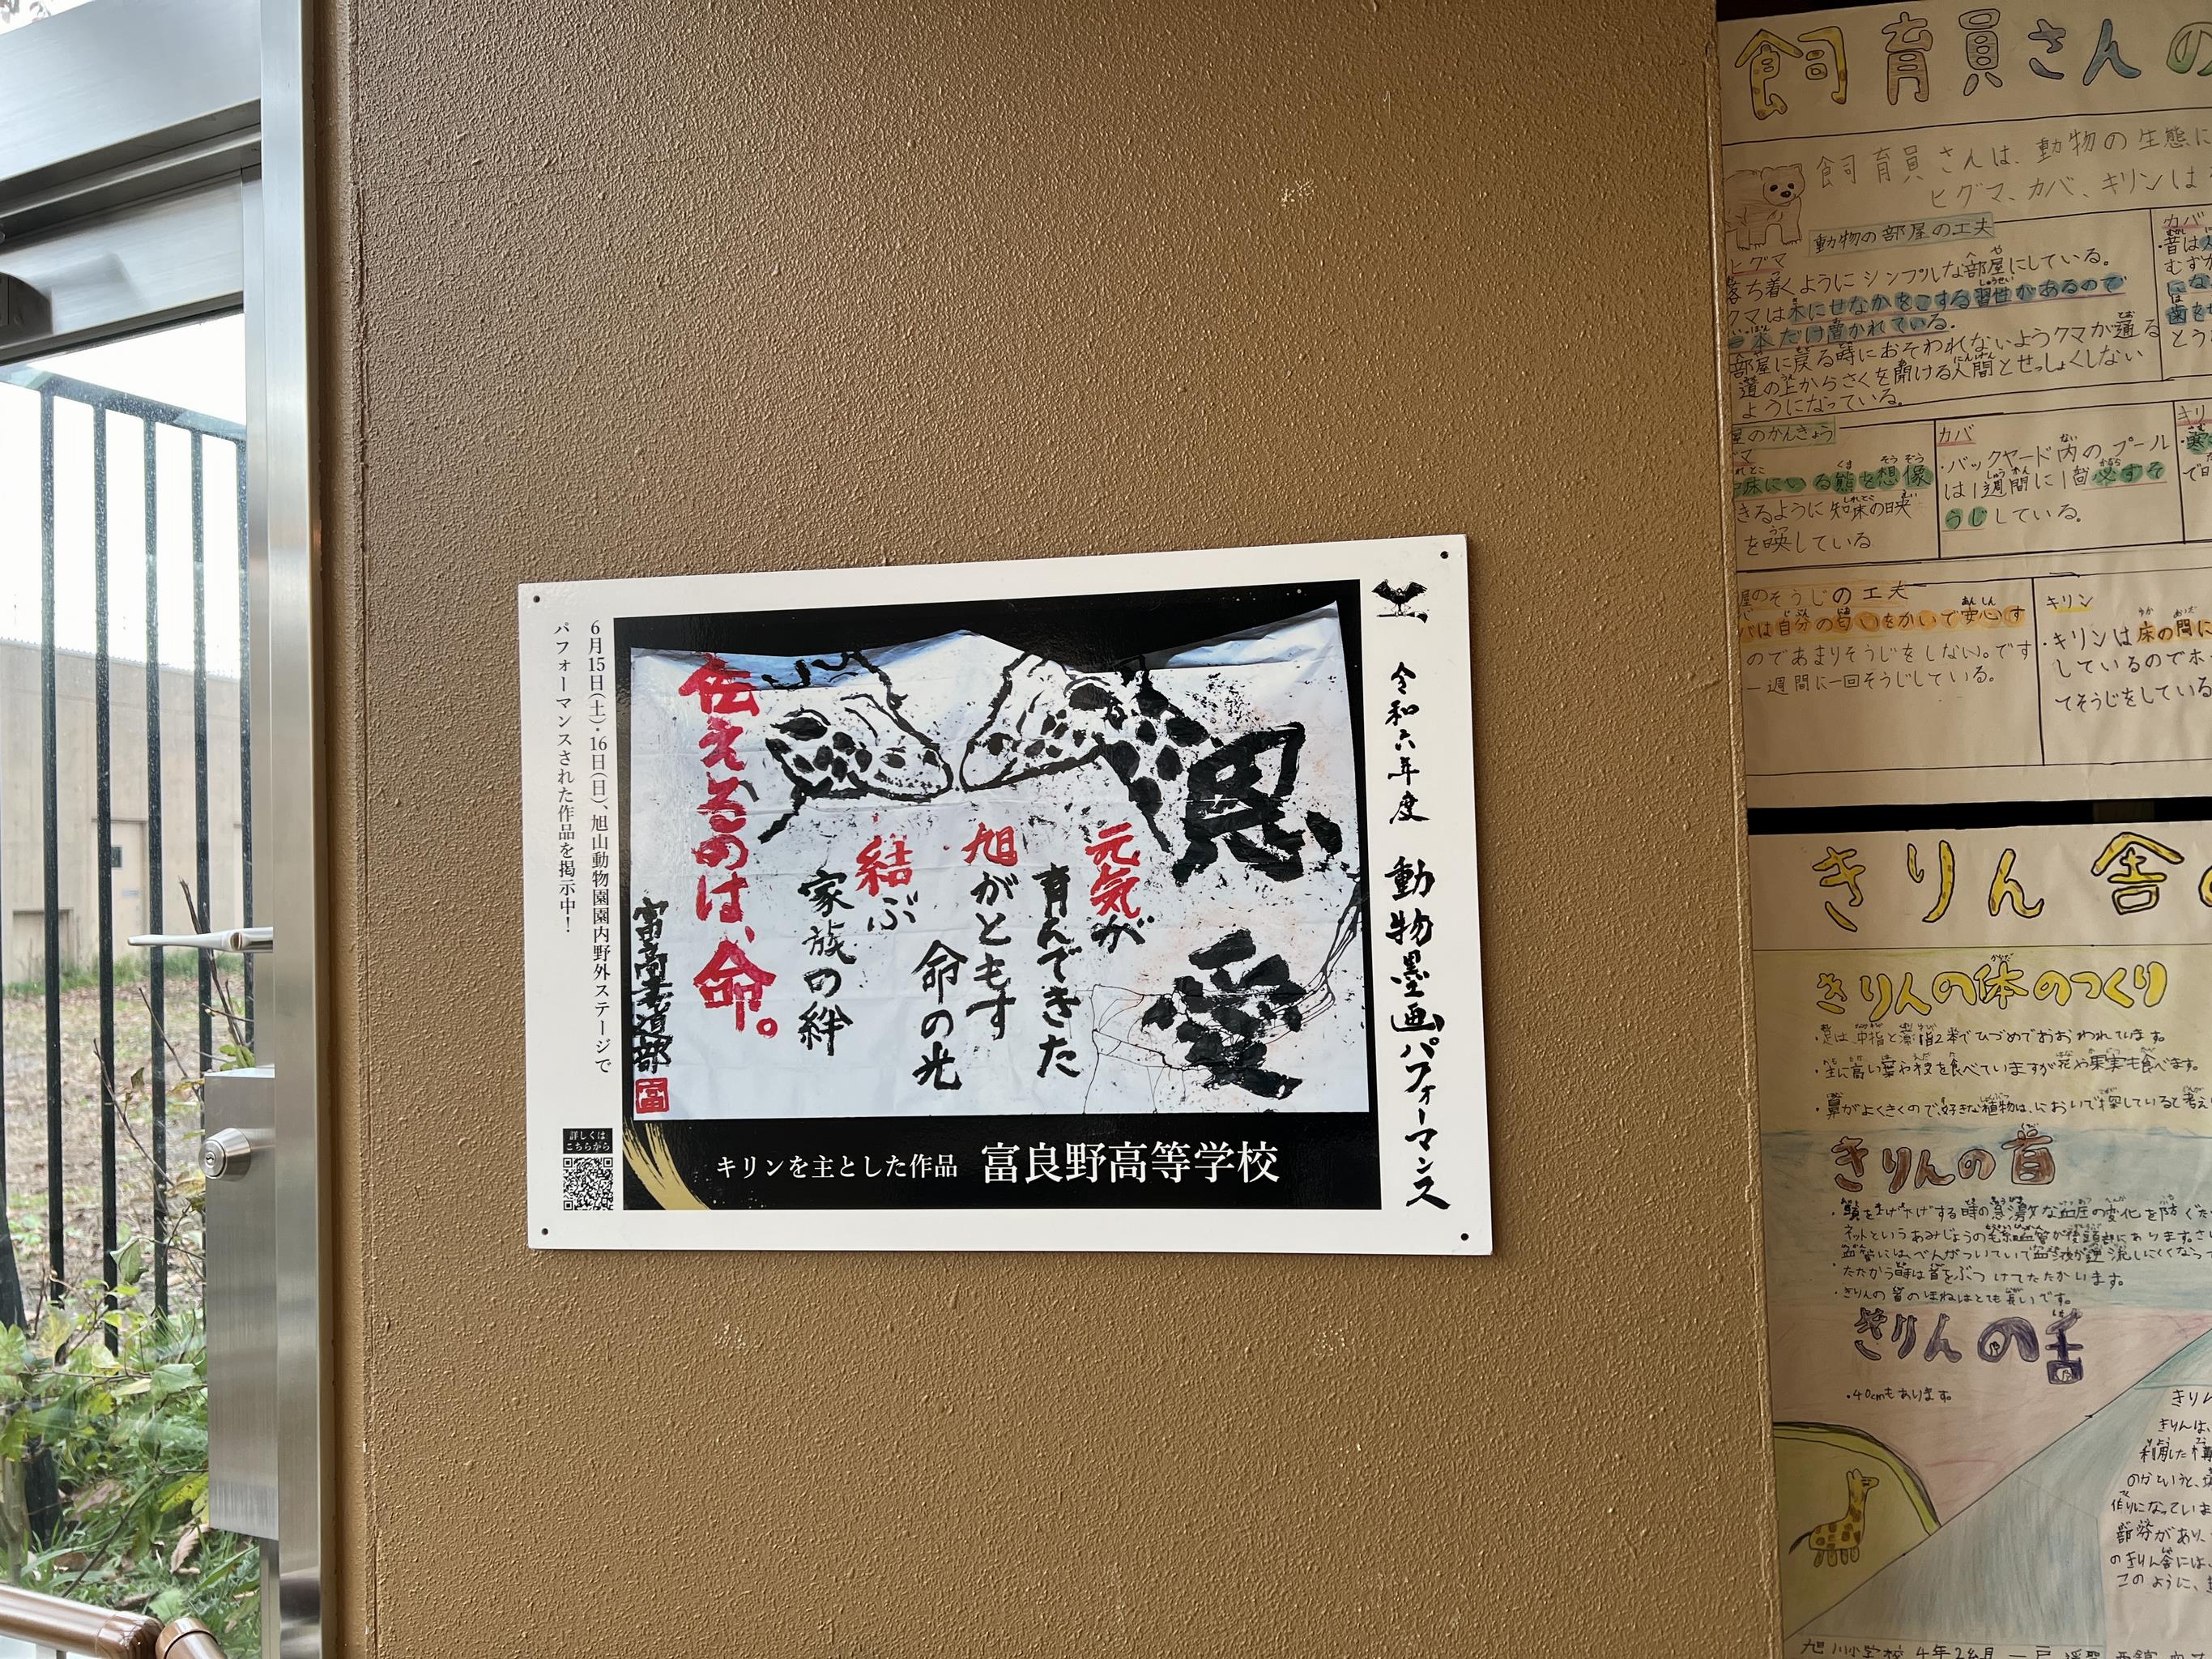 令和六年度 動物墨画パフォーマンス
恩
愛
元気が
育んできた
旭がともす
命の光
結ぶ
家族の絆
伝えるのは、命。
富高書道部
富
キリンを主とした作品 富良野高等学校
6月15日(土)・16日(日)、旭山動物園園内野外ステージで
パフォーマンスされた作品を掲示中!
詳しくは
こちらから
飼育員さんの
飼育員さんは、動物の生態に
ヒグマ、カバ、キリンは
動物の部屋の工夫
ヒグマ
落ち着くようにシンプルな部屋にしている。
クマは木にせなかをこする習性があるので
一本だけ置かれている。
部屋に戻る時におそわれないようクマが通る
道の上からさくを開ける人間とせっしょくしない
ようになっている。
カバ
屋のかんきょう
床にいる熊を想像
きるように知床の映
を映している
カバ
・バックヤード内のプール
は1週間に1回必ずそ
うじしている。
屋のそうじの工夫
バは自分の匂いをかいで安心す
のであまりそうじをしない。です
一週間に一回そうじしている。
キリン
・キリンは床の間に
しているのでホ
てそうじをしている
きりん舎の
きりんの体のつくり
・足は中指と薬指2本でひづめでおおわれています。
・主に高い葉や枝を食べていますが花や果実も食べます。
・鼻がよくきくので好きな植物は、においで探していると考え
きりんの首
・頭を上げ下げする時の急激な血圧の変化を防ぐた
ネットというあみじょうの毛細血管が後頭部にあります。
血管にはべんがついていて血液が逆流しにくくなって
・たたかう時は首をぶつけてたたかいます。
・きりんの首のほねはとても長いです。
きりんの舌
・40cmもあります。
きりん
きりんは、
利用した
のかというと、
作りになっていま
部分があり、
のきりん舎には、
このように、
旭川小学校4年2組